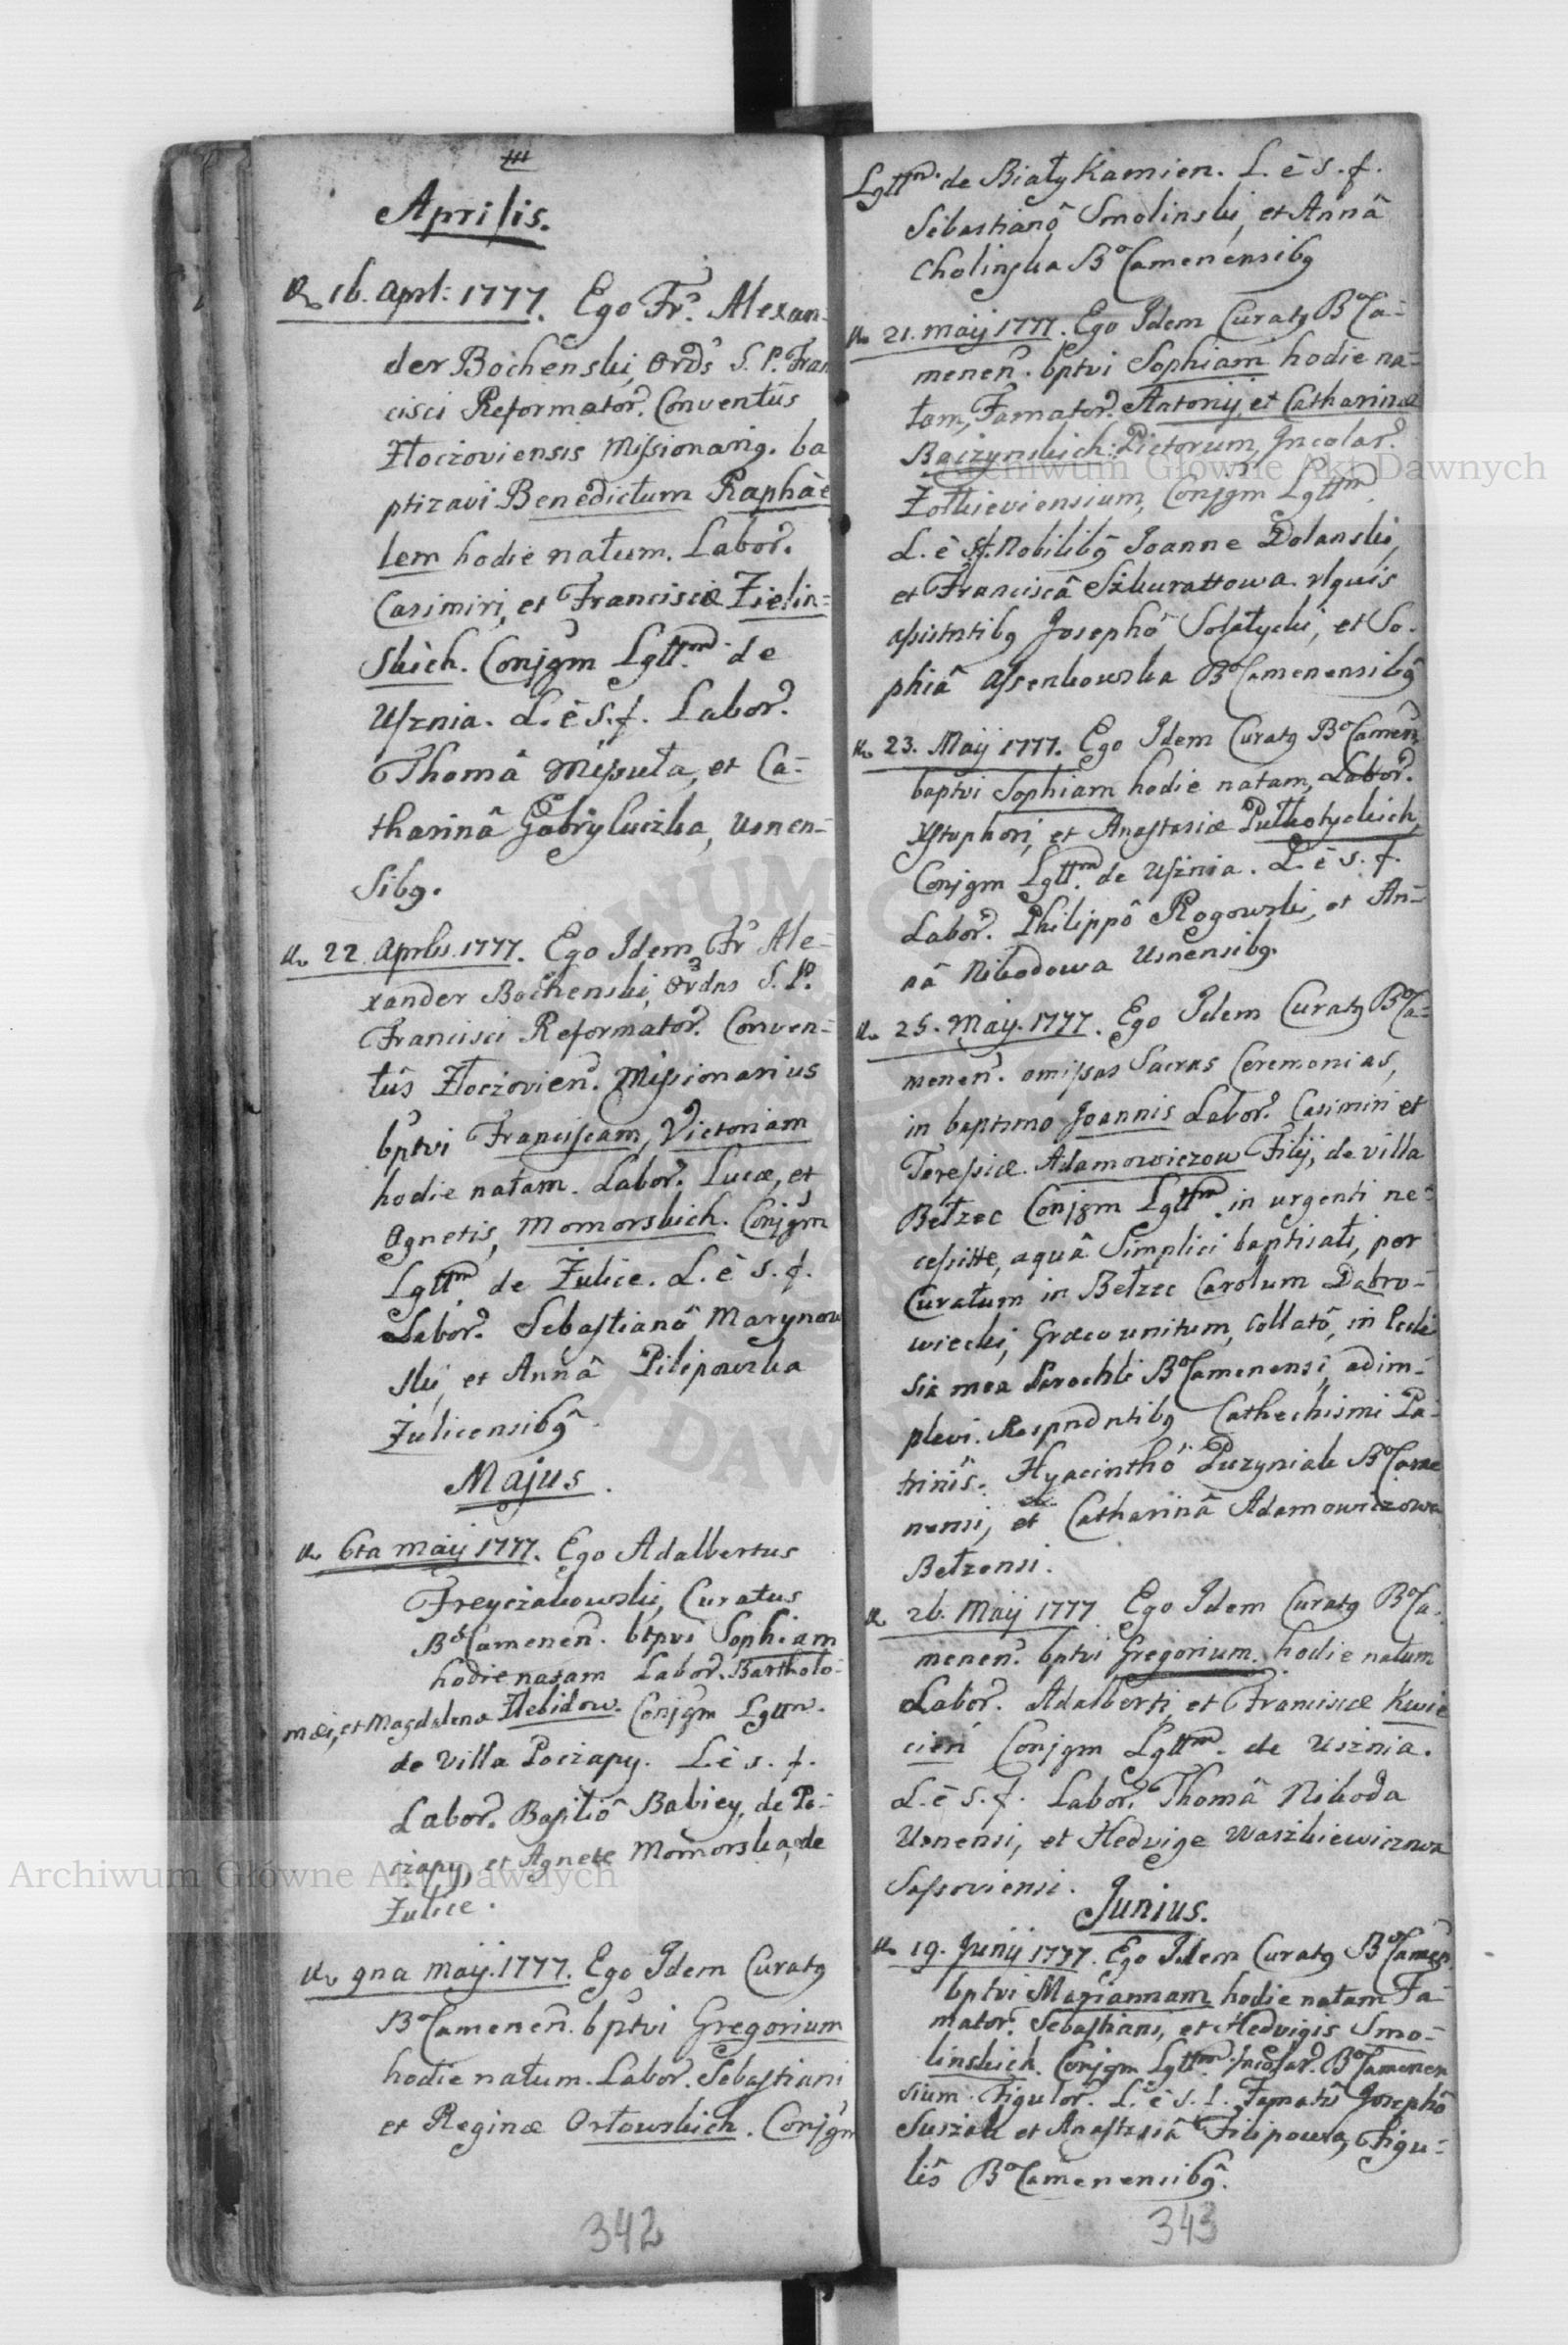 Aprilis.
16. Aprl: 1777. Ego Fr. Alexan-
der Bochenski, Ordis S. P. Fran
cisci Reformator. Conventûs
Złoczoviensis Missionarig. ba
ptizavi Benedictum Raphaë
lem hodie natum. Labor.
Casimiri, et Franciscæ Zielin=
skich. Conjgm Lgttm. de
Usznia. L. è S. f. Labor.
Thomâ Misuła, et Ca=
tharinâ Gabryluczka, Usnen-
sibg.
22. Aprlis. 1777. Ego Idem Fr Ale=
xander Bochenski, Ordns S. P.
Francisci Reformator. Conven=
tûs Złoczovien. Missionarius
bptvi Franciscam, Victoriam
hodie natam. Labor. Lucæ, et
Agnetis, Momorskich. Conjgm
Lgttm. de Żulice. L. è S. f.
Labor. Sebastianô Marynow
ski, et Annâ Pilipowska
Żulicensibg.
Majus.
6ta maij 1777. Ego Adalbertus
Freyczakowski, Curatus
BoCamenen. btpvi Sophiam
hodie natam Labor. Bartholo=
mæi, et Magdalena Zlebidow. Conjgm Lgttm.
de Villa Poczapy. L. è s. f.
Labor. Basiliô Babiey, de Po=
czapy, et Agnete Momorska, de
Żulice.
9na Maij. 1777. Ego Idem Curatg
BoCamenen. bptvi Gregorium
hodie natum. Labor. Sebastiani
et Reginæ Orłowskich. Conjgm
342
Lgttm. de Biały Kamien. L. è s. f.
Sebastianô Smolinski, et Annâ
Cholinska BoCamenensibg
21. maij 1777. Ego Idem Curatg BoCa=
menen. bptvi Sophiam hodie na=
tam, Famator. Antonij, et Catharinæ
Baczynskich Pictorum, Incolar.
Żołkieviensium, Conjgm Lgttm.
L. è S.f. Nobilibg Joanne Dolanski,
et Franciscâ Szkurattowa. Rlquis
assistntibg Josephô Sołatycki, et So-
phiâ Assenkowska BoCamenensibg
23. Maij 1777. Ego Idem Curatg BoCamen.
baptvi Sophiam hodie natam, Labor.
Xstophori, et Anastasiæ Pułkotyckich,
Conjgm Lgttm. de Uſznia. L. è s. f.
Labor. Philippô Rogowski, et An=
nâ Nikodowa Usnensibg.
25. Maij. 1777. Ego Idem Curatg BoCa=
menen. omissas Sacras Ceremonias,
in baptsmo Joannis Labor. Casimiri et
Teressiæ Adamowiczow Filij, de villa
Bełzec Conjgm Lgttm. in urgenti ne=
cessitte, aquâ Simplici baptisati, per
Curatum in Bełzec Carolum Dabro=
wiecki, Græco unitum, collatô, in Eccle
sia mea Parochli BoCamenensi, adim=
plevi. Respndntibg Cathechismi Pa-
trinis. Hyacinthô Puzyniak BoCame
nensi, et Catharinâ Adamowiczowa
Bełzensi.
26. Maij 1777 Ego Idem Curatg BoCa=
menen. bptvi Gregorium. hodie natum
Labor. Adalberti, et Franciscæ Kwie
cień Conjgm Lgttm. de Usznia.
L. è S. f. Labor. Thomâ Nikoda
Usnensi, et Hedvige Waszkiewiczowa
Sassoviensi.
Junius.
19. Junij 1777. Ego Idem Curatg BoCamen.
bptvi Mariannam hodie natam Fa=
mator. Sebastiani, et Hedvigis Smo=
linskich. Conjgm Lgttm. Incolar. BoCamenen
sium. Figulor. L. è s. f. Famatis Josephô
Suszak et Anastasiâ Filipowa, Figu=
lis BoCamenensibg.
343
Archiwum Główne Akt Dawnych
Archiwum Główne Akt Dawnych